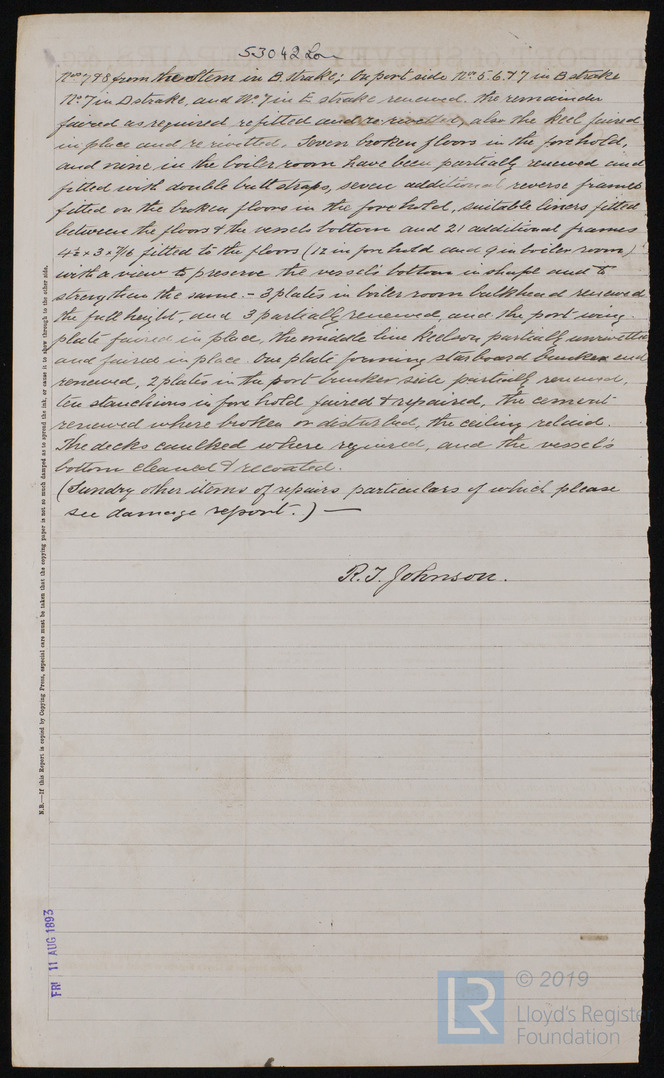 53042 Lon
Nos 7 & 8 from the Stem in B strake; On port side Nos 5. 6. & 7 in B strake
No 7 in D strake, and No 7 in E strake renewed. the remainder
faired as required refitted and re-rivetted, also the keel faired
in place and re rivetted. Seven broken floors in the fore hold,
and nine in the boiler room have been partially renewed and
fitted with double butt straps, seven additional reverse frames
fitted on the broken floors in the fore hold, suitable liners fitted
between the floors & the vessels bottom and 21 additional frames
4½ x 3 x 7/16 fitted to the floors (12 in fore hold and 9 in boiler room)
with a view to preserve the vessels bottom in shape and to
strengthen the same. - 3 plates in boiler room bulkhead renewed
the full height, and 3 partially renewed, and the port wing
plate faired in place, the middle line keelson partially unrivetted
and faired in place. One plate forming starboard bunker end
renewed, 2 plates in the port bunker side partially renewed,
ten stanchions in fore hold faired & repaired, the cement
renewed where broken or disturbed, the ceiling relaid.
The decks caulked where required, and the vessel's
bottom cleaned & recoated.
(Sundry other items of repairs particulars of which please
see damage report.) —
R. T. Johnson.
N.B.—If this Report is copied by Copying Press, especial care must be taken that the copying paper is not so much damped as to spread the ink, or cause it to show through to the other side.
FRI 11 AUG 1893
LR
© 2019
Lloyd's Register
Foundation